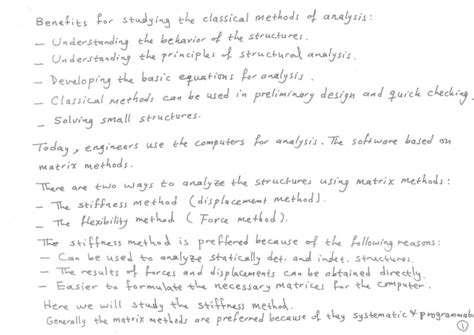 Benefits for studying the classical methods of analysis:
- Understanding the behavior of the structures.
- Understanding the principles of structural analysis.
- Developing the basic equations for analysis.
- Classical methods can be used in preliminary design and quick checking.
- Solving small structures.
Today, engineers use the computers for analysis. The software based on
matrix methods.
There are two ways to analyze the structures using matrix methods:
- The stiffness method (displacement method).
- The flexibility method (Force method).
The stiffness method is preffered because of the following reasons:
- Can be used to analyze statically det. and indet. structures.
- The results of forces and displacements can be obtained directly.
- Easier to formulate the necessary matrices for the computer.
Here we will study the stiffness method.
Generally the matrix methods are preferred because of they systematic & programmati
1